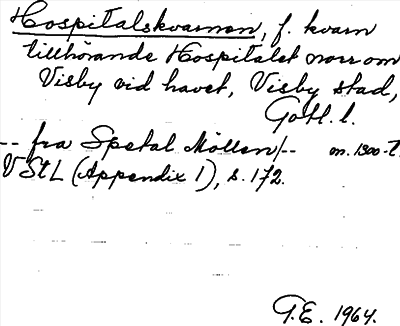 Hospitalskvarnen, f. kvarn
tillhörande Hospitalet norr om
Visby vid havet, Visby stad,
Gotl. l.
-- fra Spetal Møllen/-- m. 1300-t.
VStL (Appendix 1), s. 172.
G.E. 1964.